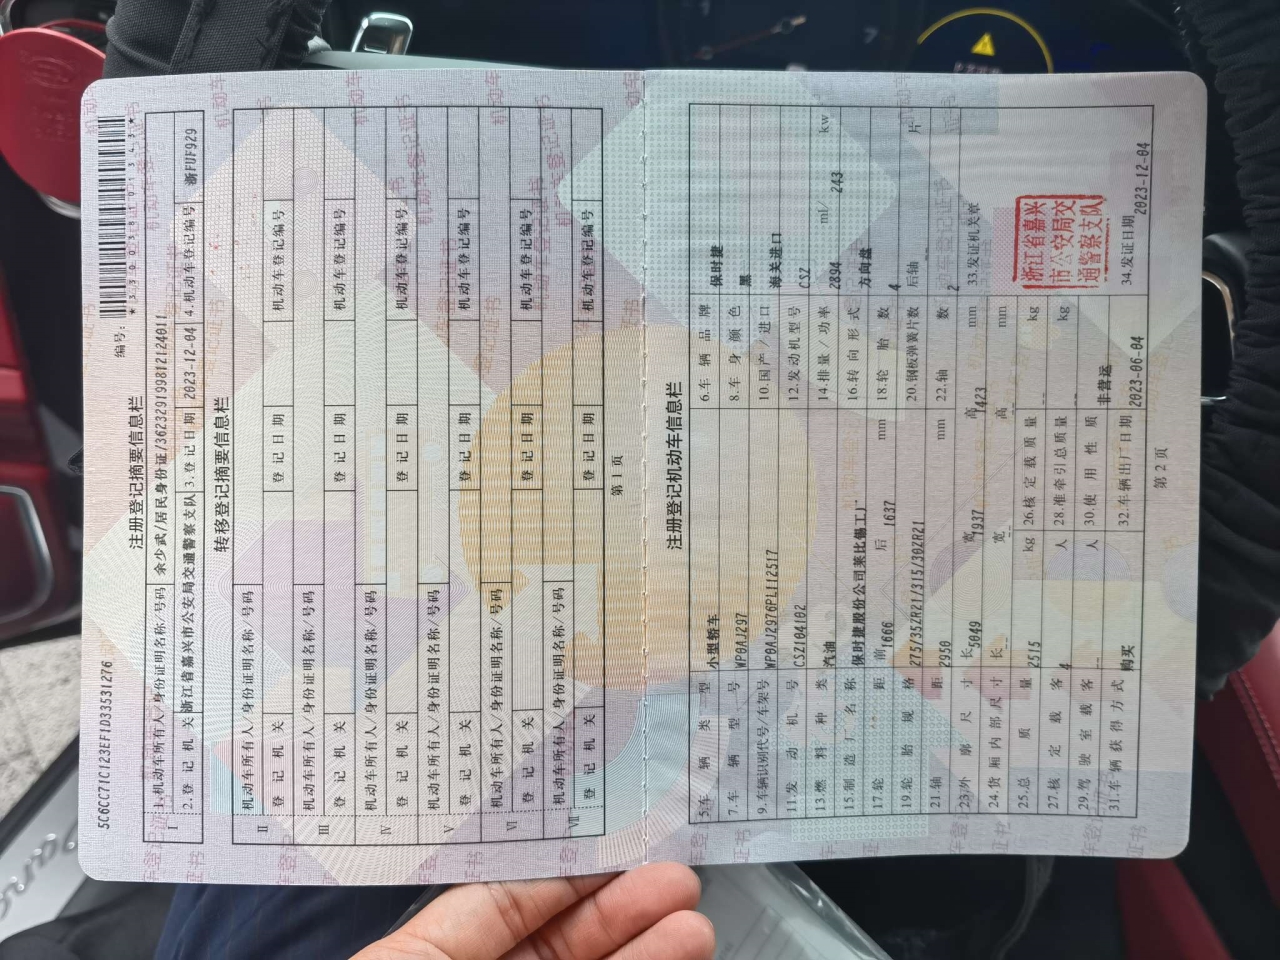 5C6CC71C123EF1D33531276
编号:
*330035810134 3*
注册登记摘要信息栏
Ⅰ 1.机动车所有人/身份证明名称/号码 余少武/居民身份证/362329199812124011
2.登记机关 浙江省嘉兴市公安局交通警察支队 3.登记日期 2023-12-04 4.机动车登记编号 浙FUF929
转移登记摘要信息栏
Ⅱ 机动车所有人/身份证明名称/号码
登记机关 登记日期 机动车登记编号
Ⅲ 机动车所有人/身份证明名称/号码
登记机关 登记日期 机动车登记编号
Ⅳ 机动车所有人/身份证明名称/号码
登记机关 登记日期 机动车登记编号
Ⅴ 机动车所有人/身份证明名称/号码
登记机关 登记日期 机动车登记编号
Ⅵ 机动车所有人/身份证明名称/号码
登记机关 登记日期 机动车登记编号
Ⅶ 机动车所有人/身份证明名称/号码
登记机关 登记日期 机动车登记编号
第 1 页
注册登记机动车信息栏
5.车辆类型 小型轿车 6.车辆品牌 保时捷
7.车辆型号 WP0AJ297 8.车身颜色 黑
9.车辆识别代号/车架号 WP0AJ2976PL112517 10.国产/进口 海关进口
11.发动机号 CSZ104102 12.发动机型号 CSZ
13.燃料种类 汽油 14.排量/功率 2894 ml/ 243 kw
15.制造厂名称 保时捷股份公司莱比锡工厂 16.转向形式 方向盘
17.轮距 前 1666 后 1637 mm 18.轮胎数 4
19.轮胎规格 275/35ZR21/315/30ZR21 20.钢板弹簧片数 后轴 -- 片
21.轴距 2950 mm 22.轴数 2
23.外廓尺寸 长 5049 宽 1937 高 1423 mm 33.发证机关章
24.货厢内部尺寸 长 -- 宽 -- 高 -- mm
浙江省嘉兴
市公安局交
通警察支队
25.总质量 2515 kg 26.核定载质量 -- kg
27.核定载客 4 人 28.准牵引总质量 -- kg
29.驾驶室载客 -- 人 30.使用性质 非营运
31.车辆获得方式 购买 32.车辆出厂日期 2023-06-04 34.发证日期 2023-12-04
第 2 页